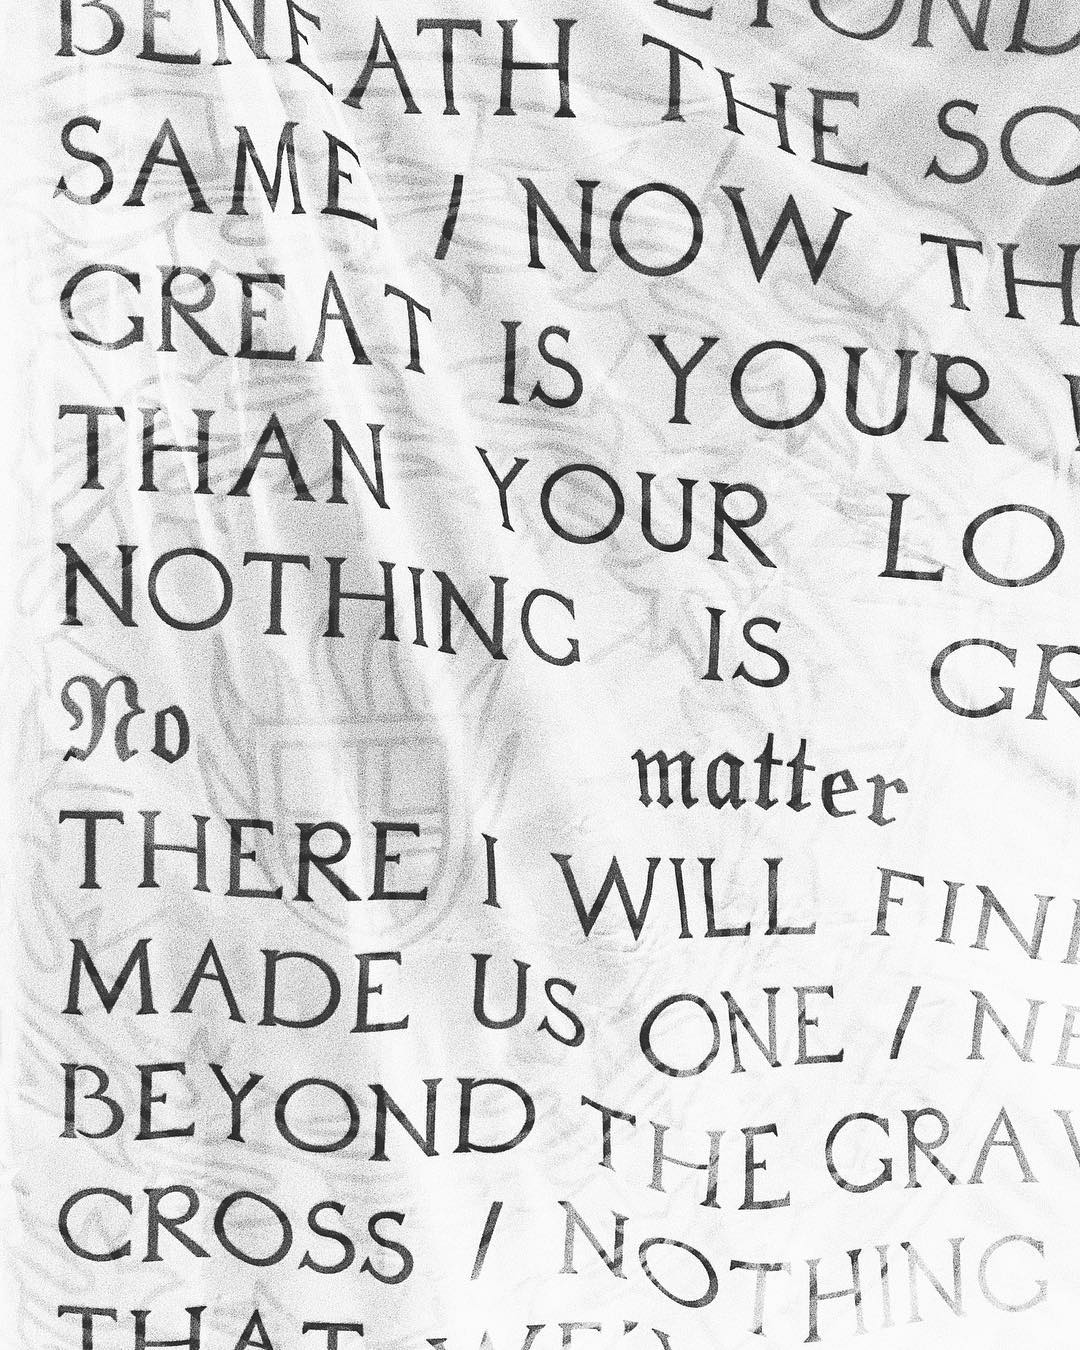 EYOND
BENEATH THE SO
SAME / NOW TH
GREAT IS YOUR
THAN YOUR LO
NOTHING IS GR
No matter
THERE I WILL FIN
MADE US ONE / NE
BEYOND THE GRAV
CROSS / NOTHING
THAT WE'